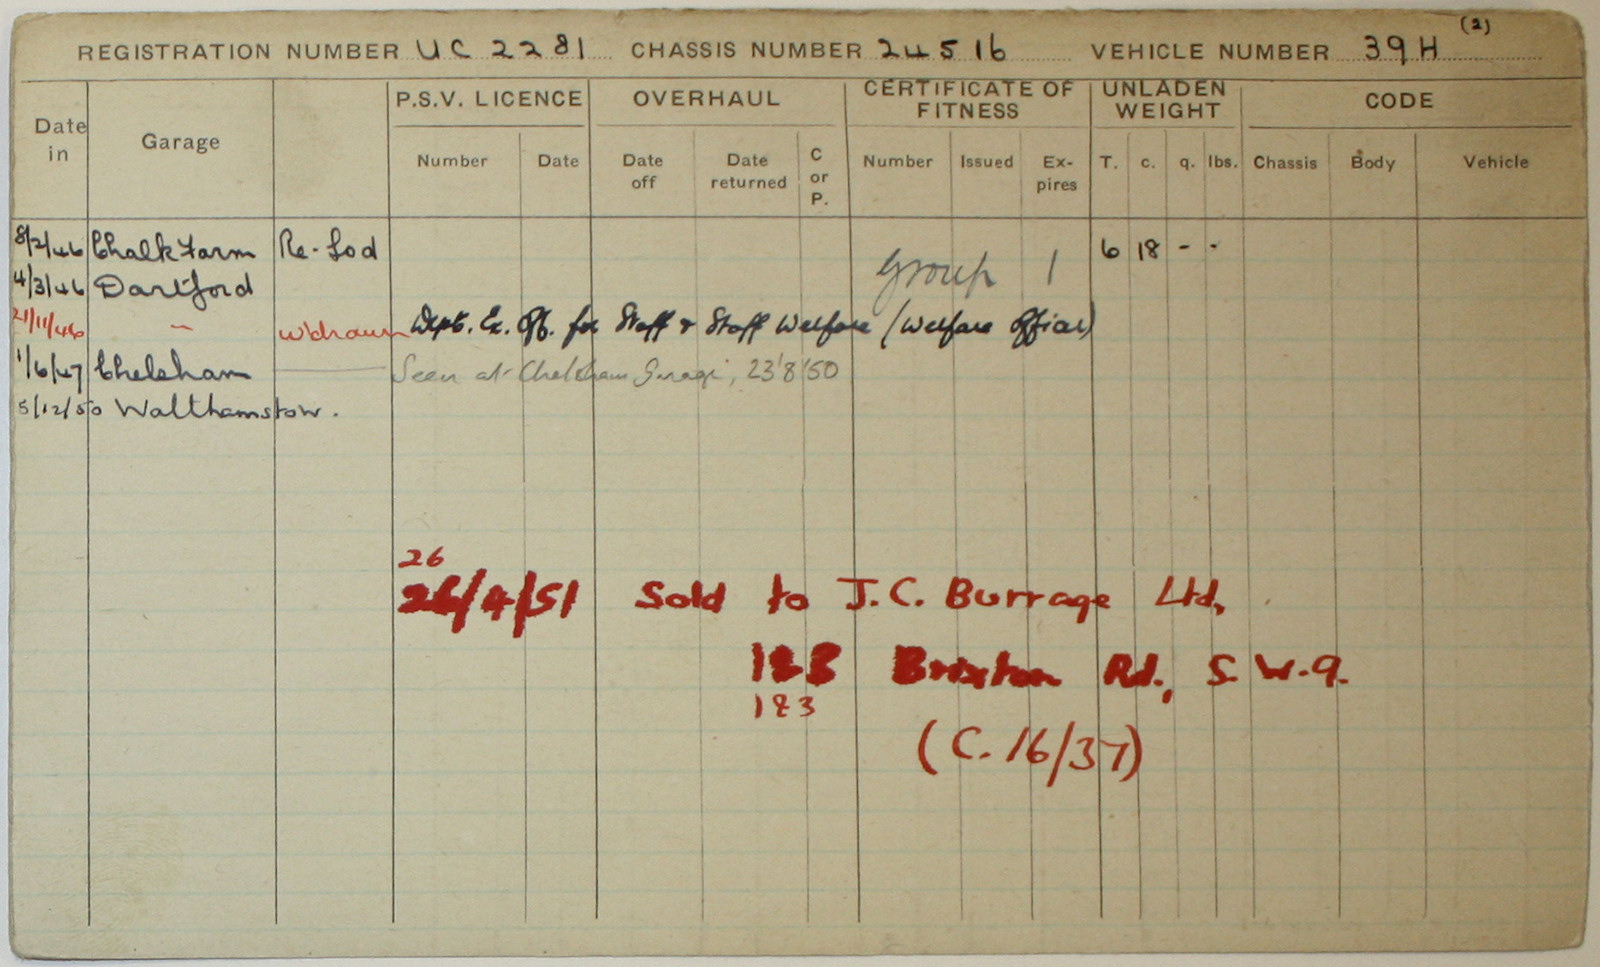 (2)
REGISTRATION NUMBER UC 2281 CHASSIS NUMBER 24516 VEHICLE NUMBER 39H
Date in Garage P.S.V. LICENCE OVERHAUL CERTIFICATE OF FITNESS UNLADEN WEIGHT CODE
Number Date Date off Date returned C or P. Number Issued Ex-pires T. c. q. lbs. Chassis Body Vehicle
8/2/46 Chalk Farm Re-Lod 6 18 - -
Group 1
4/3/46 Dartford
21/11/46 " w'drawn Dept. Ex. Off. for Staff & Staff Welfare (Welfare Officer)
1/6/47 Chelsham Seen at Chelsham Garage, 23'8'50
5/12/50 Walthamstow.
26
26/4/51 Sold to J.C. Burrage Ltd,
183 Brixton Rd., S.W.9.
183
(C.16/37)